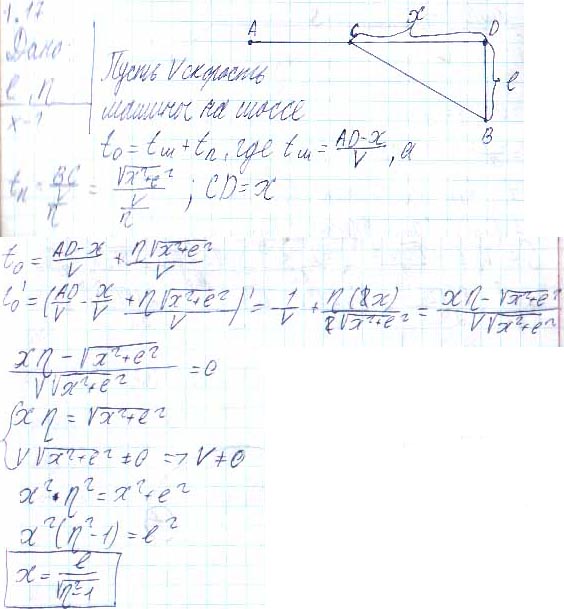 1.17
Дано:
l, η
x-?
A C x D
l
B
Пусть V скорость
машины на шоссе
t₀ = tш + tп, где tш = (AD-x)/V, а
tп = BC/(V/η) = √(x²+l²)/(V/η); CD=x
t₀ = (AD-x)/V + η√(x²+l²)/V
t₀' = (AD/V - x/V + η√(x²+l²)/V)' = 1/V + η(2x)/(2√(x²+l²)) = (xη-√(x²+l²))/(V√(x²+l²))
(xη-√(x²+l²))/(V√(x²+l²)) = 0
{xη = √(x²+l²)
V√(x²+l²) ≠ 0 => V≠0
x²·η² = x²+l²
x²(η²-1) = l²
x = l/√(η²-1)